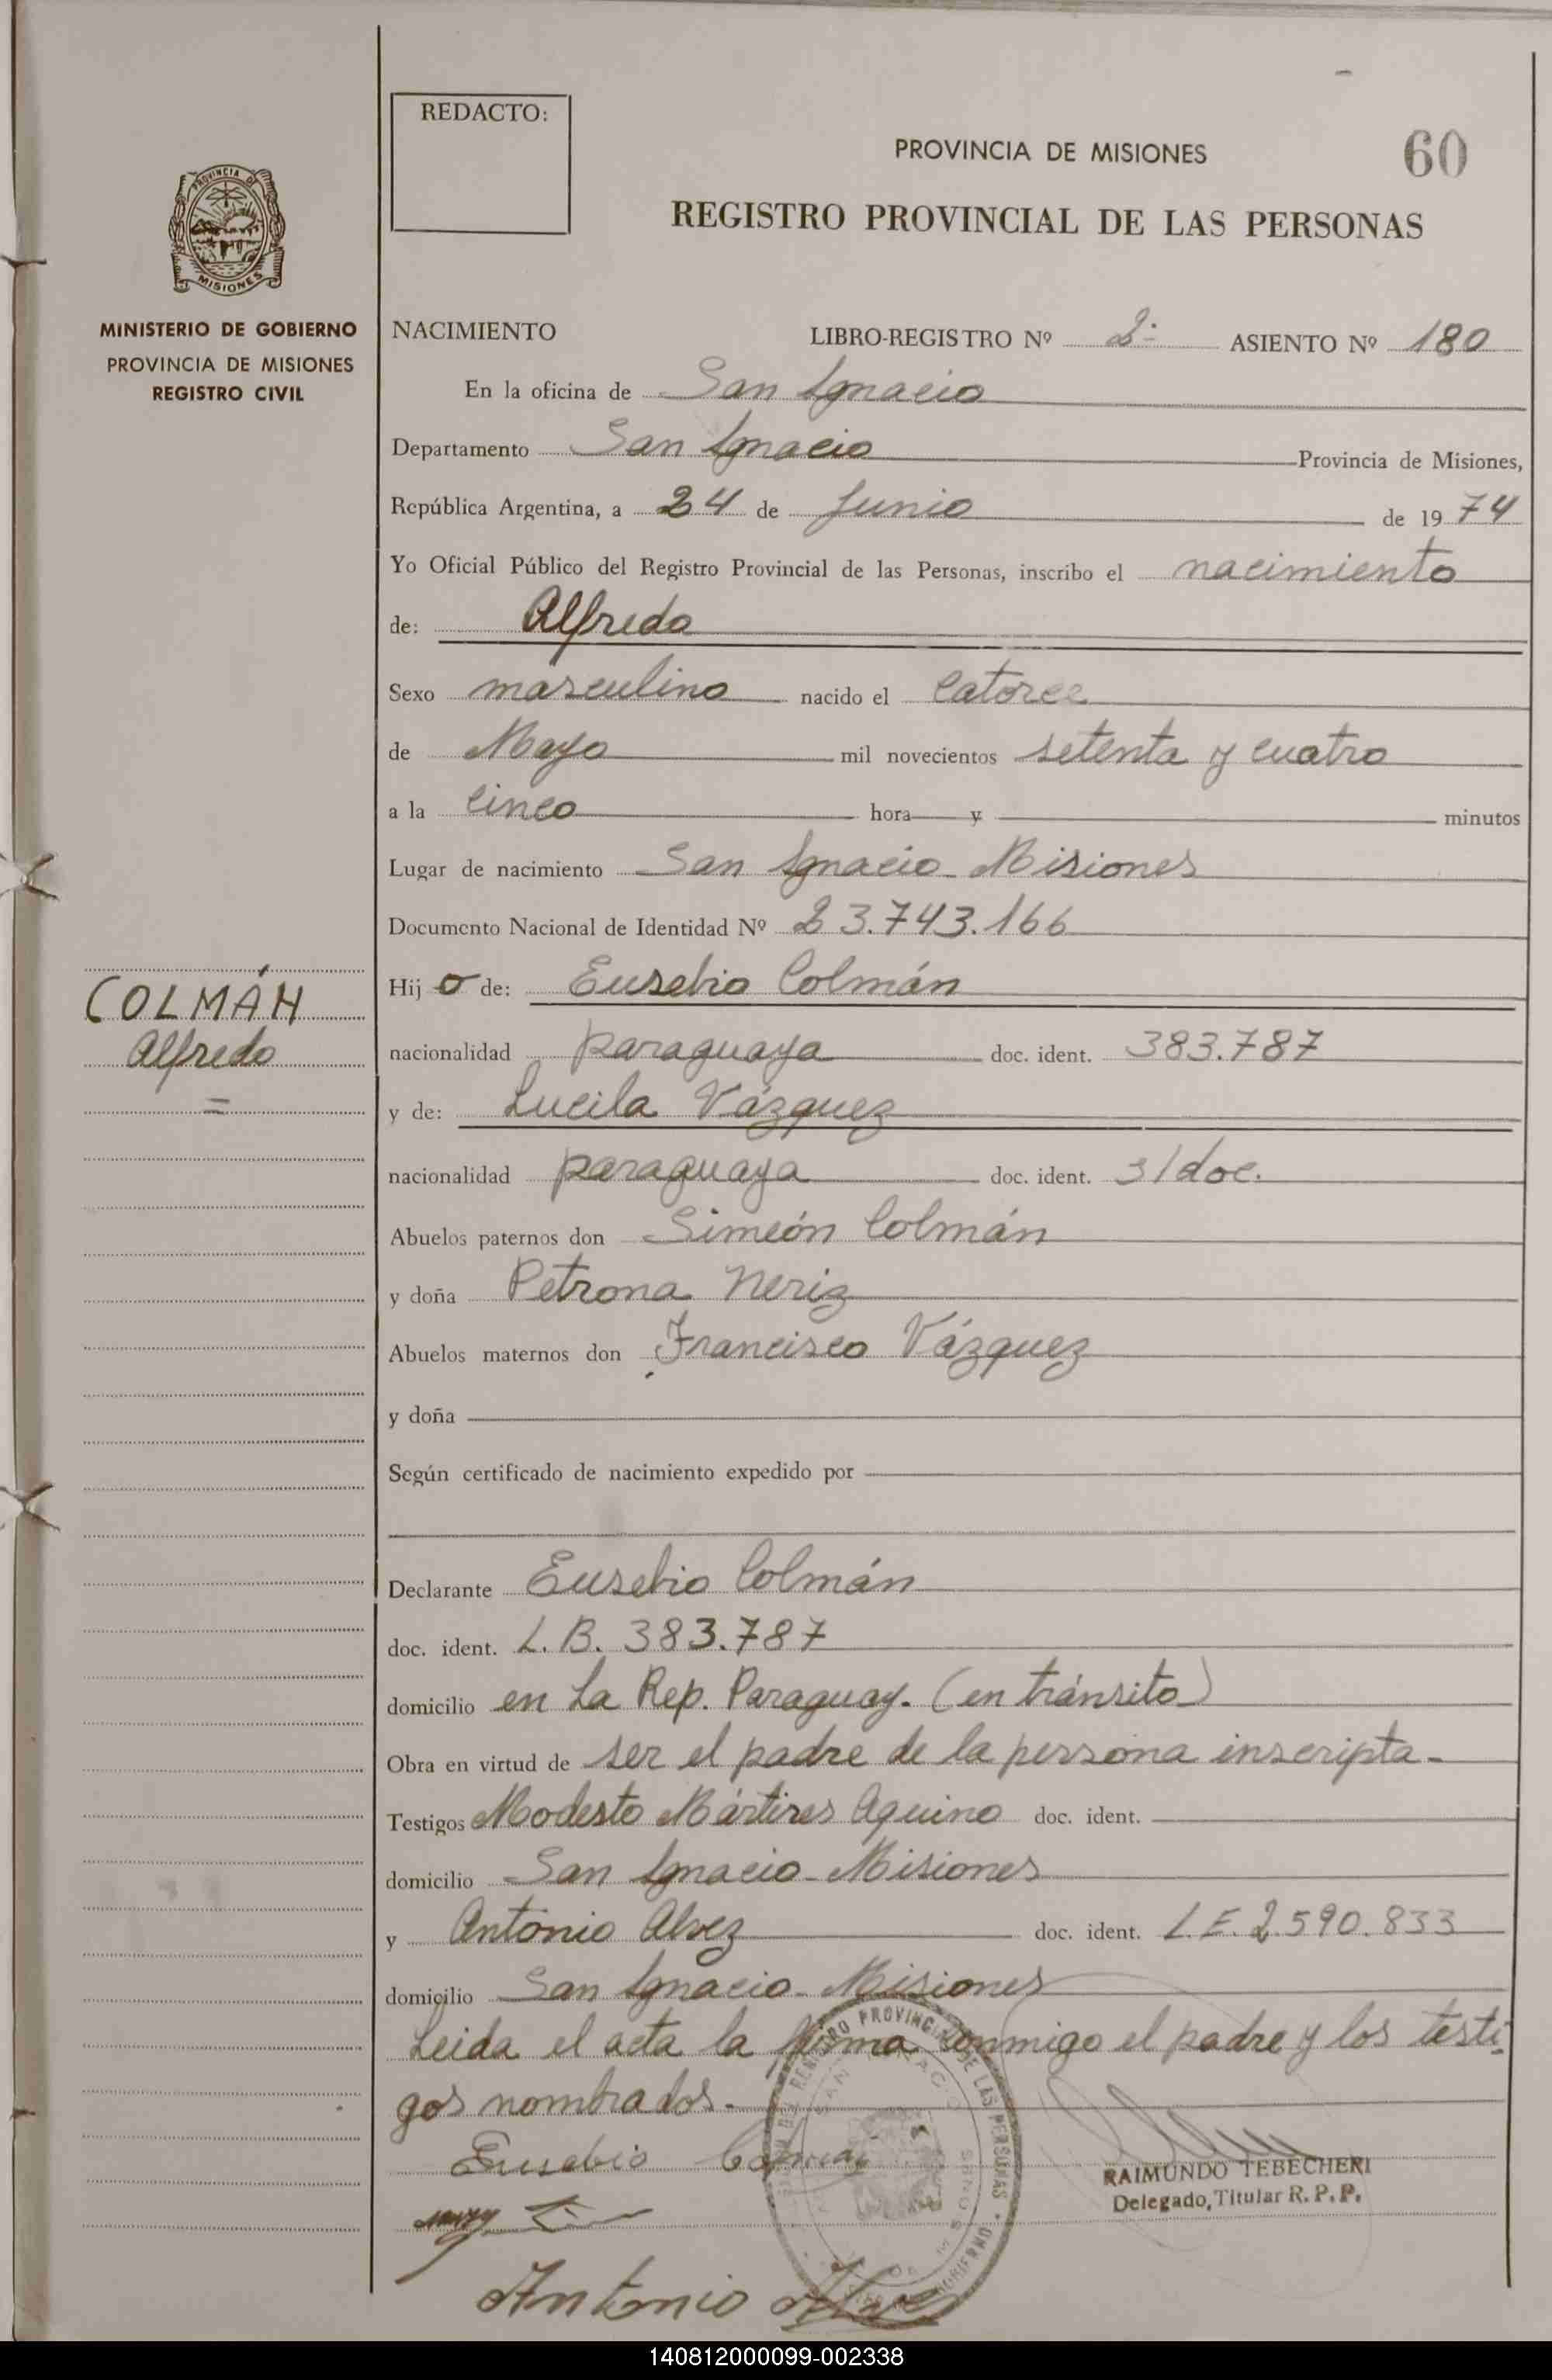 REDACTO:
PROVINCIA DE MISIONES
60
REGISTRO PROVINCIAL DE LAS PERSONAS
PROVINCIA DE
MISIONES
MINISTERIO DE GOBIERNO
PROVINCIA DE MISIONES
REGISTRO CIVIL
NACIMIENTO LIBRO-REGISTRO Nº 2º ASIENTO Nº 180
En la oficina de San Ignacio
Departamento San Ignacio Provincia de Misiones,
República Argentina, a 24 de Junio de 1974
Yo Oficial Público del Registro Provincial de las Personas, inscribo el nacimiento
de: Alfredo
Sexo masculino nacido el Catorce
de Mayo mil novecientos setenta y cuatro
a la cinco hora y minutos
Lugar de nacimiento San Ignacio - Misiones
Documento Nacional de Identidad Nº 23.743.166
Hijo de: Eusebio Colmán
COLMÁN
Alfredo
=
nacionalidad paraguaya doc. ident. 383.787
y de: Lucila Vázquez
nacionalidad paraguaya doc. ident. s/doc.
Abuelos paternos don Simeón Colmán
y doña Petrona Neriz
Abuelos maternos don Francisco Vázquez
y doña
Según certificado de nacimiento expedido por
Declarante Eusebio Colmán
doc. ident. L.B. 383.787
domicilio en La Rep. Paraguay. (en tránsito)
Obra en virtud de ser el padre de la persona inscripta.
Testigos Modesto Mártires Aquino doc. ident.
domicilio San Ignacio - Misiones
y Antonio Alvez doc. ident. L.E. 2.590.833
domicilio San Ignacio - Misiones
Leida el acta la firma conmigo el padre y los testi-
gos nombrados.-
Eusebio
RAIMUNDO TEBECHERI
Delegado, Titular R. P. P.
Antonio Alvez
140812000099-002338